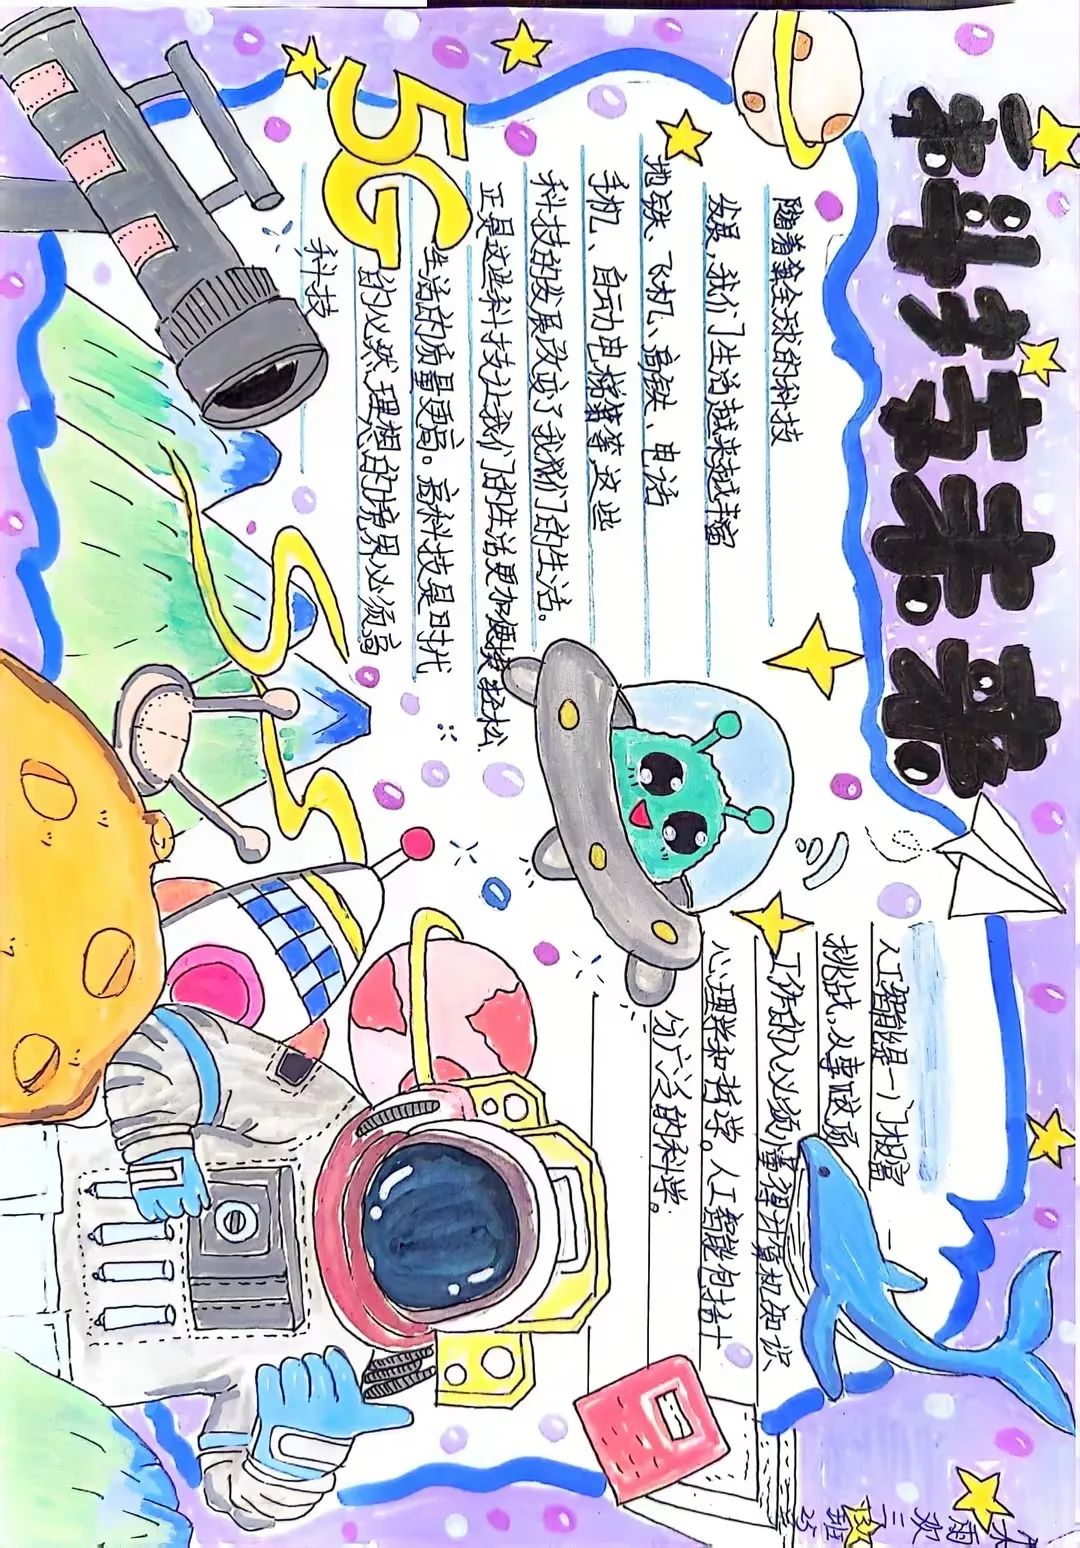 科技未来
随着全球的科技
发展,我们生活越来越丰富
地铁、飞机、高铁、电话
手机、自动电梯等等这些
科技的发展改变了我们的生活。
正是这些科技让我们的生活更加便捷轻松
生活的质量更高。高科技是时代
的必然,理想的境界必须高
科技
5G
人工智能是一门极富
挑战,从事这项
工作的人必须懂得计算机知识
心理学和哲学。人工智能包括十
分广泛的科学。
雨欢
班
25